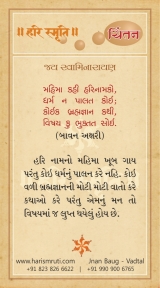 ॥ હરિ સ્મૃતિ ॥
ચિંતન
જય સ્વામિનારાયણ
મહિમા કહી હરિનામકો,
ધર્મ ન પાલત કોઇ;
કોઈક બ્રહ્મજ્ઞાન કથી,
વિષય કુ ભુક્તત સોઇ.
(બાવન અક્ષરી)
હરિ નામનો મહિમા ખૂબ ગાય
પરંતુ કોઇ ધર્મનું પાલન કરે નહિ. કોઇ
વળી બ્રહ્મજ્ઞાનની મોટી મોટી વાતો કરે
કથાઓ કરે પરંતુ એમનું મન તો
વિષયમાં જ લુપ્ત થયેલું હોય છે.
www.harismruti.com
+91 823 826 6622
Jnan Baug - Vadtal
+91 990 900 6765